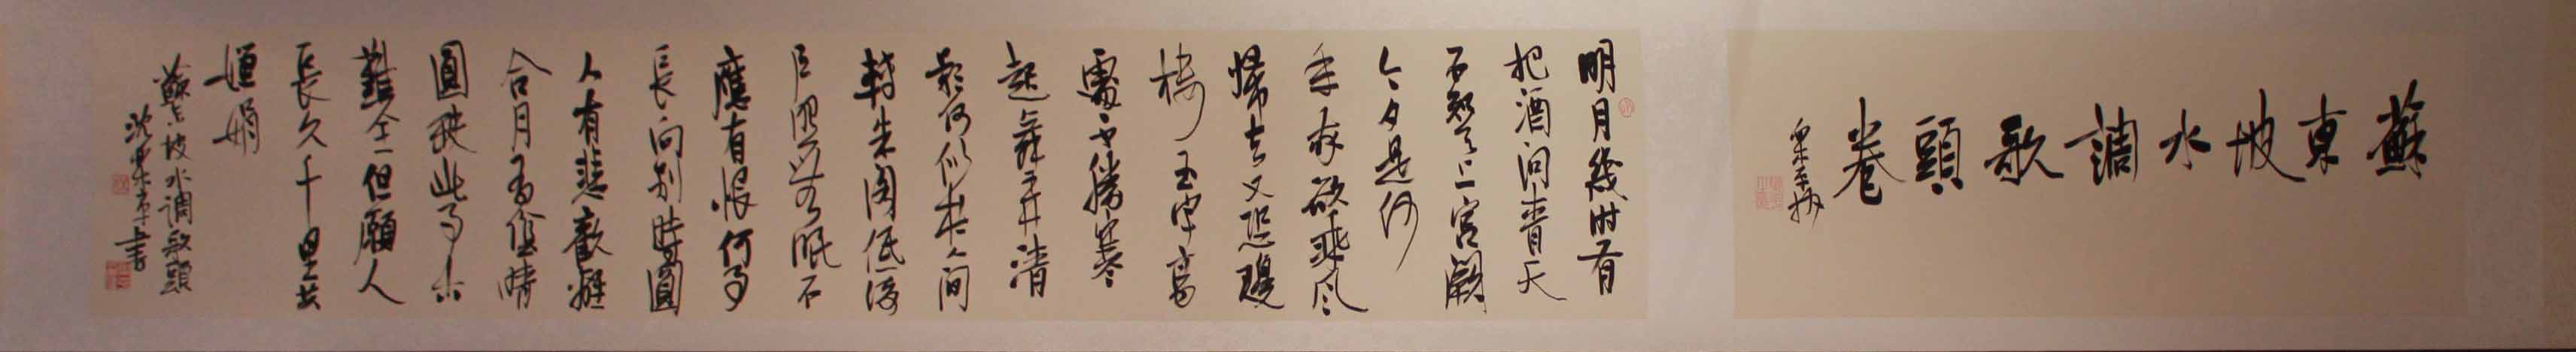 蘇東坡水調歌頭卷
明月幾时有
把酒问青天
不知天上宫闕
今夕是何
年我欲乘风
歸去又恐瓊
樓玉宇高
處不勝寒
起舞弄清
影何似在人间
轉朱阁低绮
户照无眠不
應有恨何事
長向别時圓
人有悲歡離
合月有陰晴
圓缺此事古
難全但願人
長久千里共
嬋娟
蘇东坡水调歌頭
書